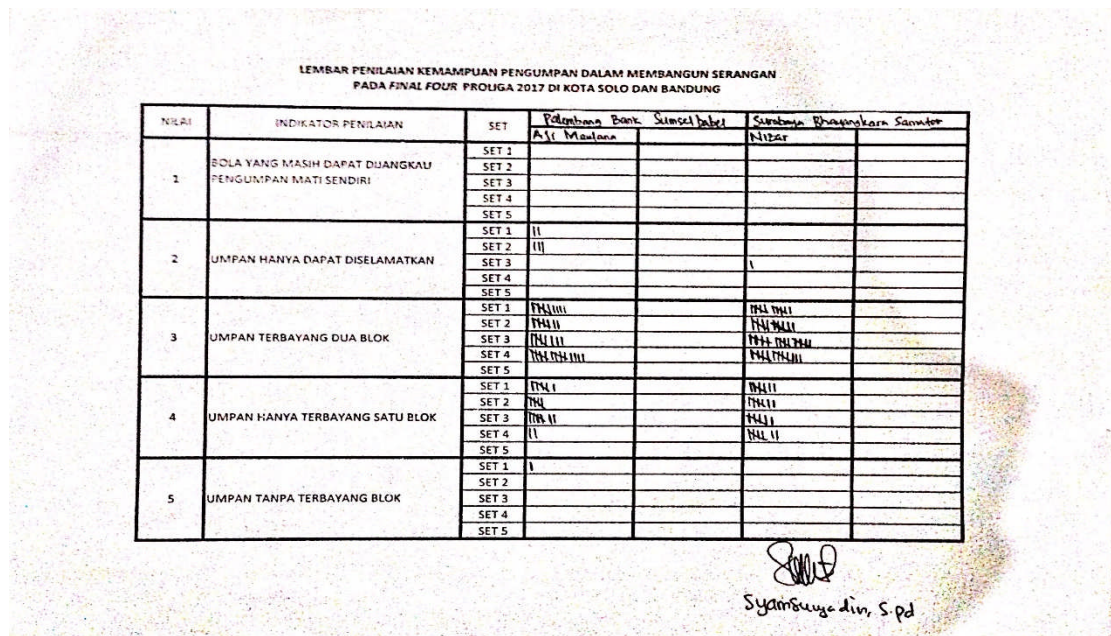 LEMBAR PENILAIAN KEMAMPUAN PENGUMPAN DALAM MEMBANGUN SERANGAN
PADA FINAL FOUR PROLIGA 2017 DI KOTA SOLO DAN BANDUNG
NILAI INDIKATOR PENILAIAN SET Palembang Bank Sumsel Babel Surabaya Bhayangkara Samator
Aji Maulana Nizar
1 BOLA YANG MASIH DAPAT DIJANGKAU
PENGUMPAN MATI SENDIRI
SET 1
SET 2
SET 3
SET 4
SET 5
2 UMPAN HANYA DAPAT DISELAMATKAN
SET 1 II
SET 2 III
SET 3 I
SET 4
SET 5
3 UMPAN TERBAYANG DUA BLOK
SET 1
SET 2
SET 3
SET 4
SET 5
4 UMPAN HANYA TERBAYANG SATU BLOK
SET 1
SET 2
SET 3
SET 4
SET 5
5 UMPAN TANPA TERBAYANG BLOK
SET 1 I
SET 2
SET 3
SET 4
SET 5
Syamsuryadin, S.pd